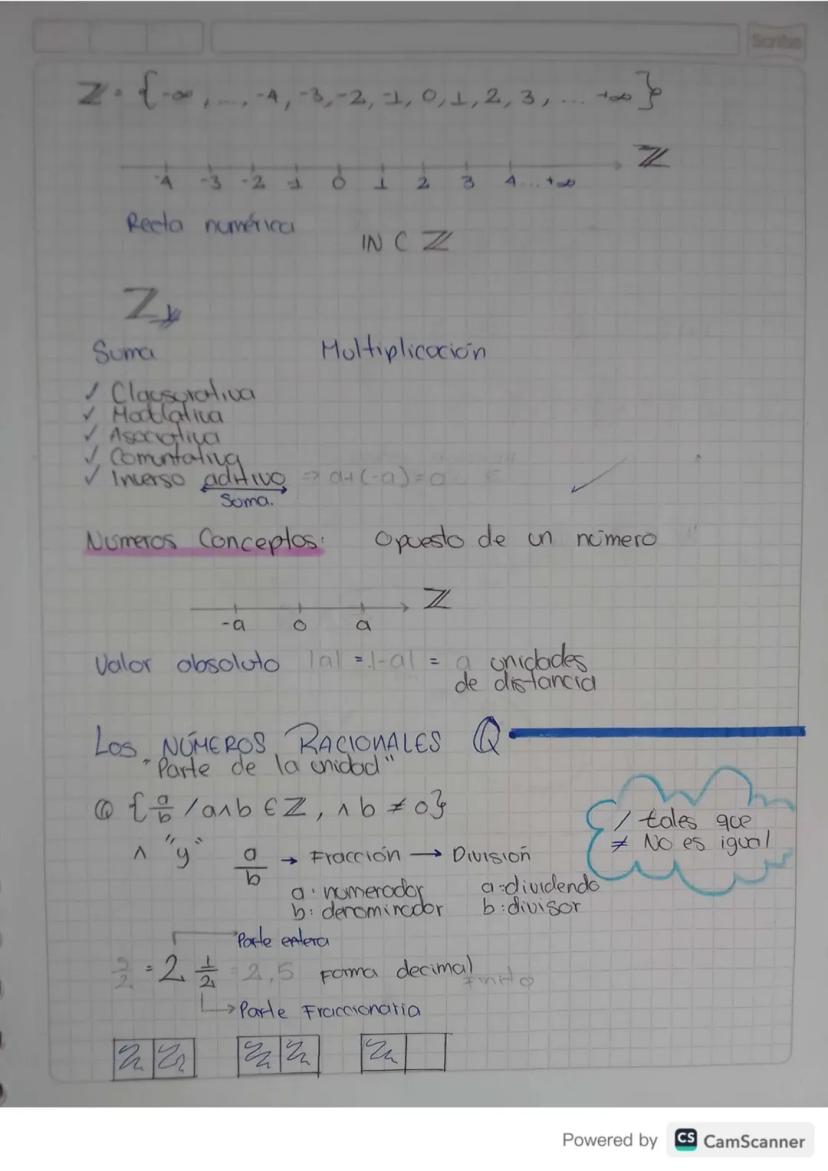 Scribe
Z = {-∞, ..., -4, -3, -2, -1, 0, 1, 2, 3, ... +∞}
Z
-4 -3 -2 -1 0 1 2 3 4 ... +∞
Recta numérica
IN C Z
Z
Suma Multiplicación
✓ Clausurativa
✓ Modulativa
✓ Asociativa
✓ Conmutativa
✓ Inverso aditivo ⇒ a+(-a)=0
Suma.
Números Conceptos: Opuesto de un número
Z
-a 0 a
Valor absoluto |a| = |-a| = a unidades
de distancia
Los NÚMEROS RACIONALES Q
"Parte de la unidad"
Q {a/b / a∧b ∈ Z, ∧ b ≠ 0}
/ tales que
≠ No es igual
∧ "y" a/b → Fracción → División
a: numerador a: dividendo
b: denominador b: divisor
Parte entera
5/2 = 2 1/2 = 2,5 Forma decimal finito
Parte Fraccionaria
Powered by CS CamScanner